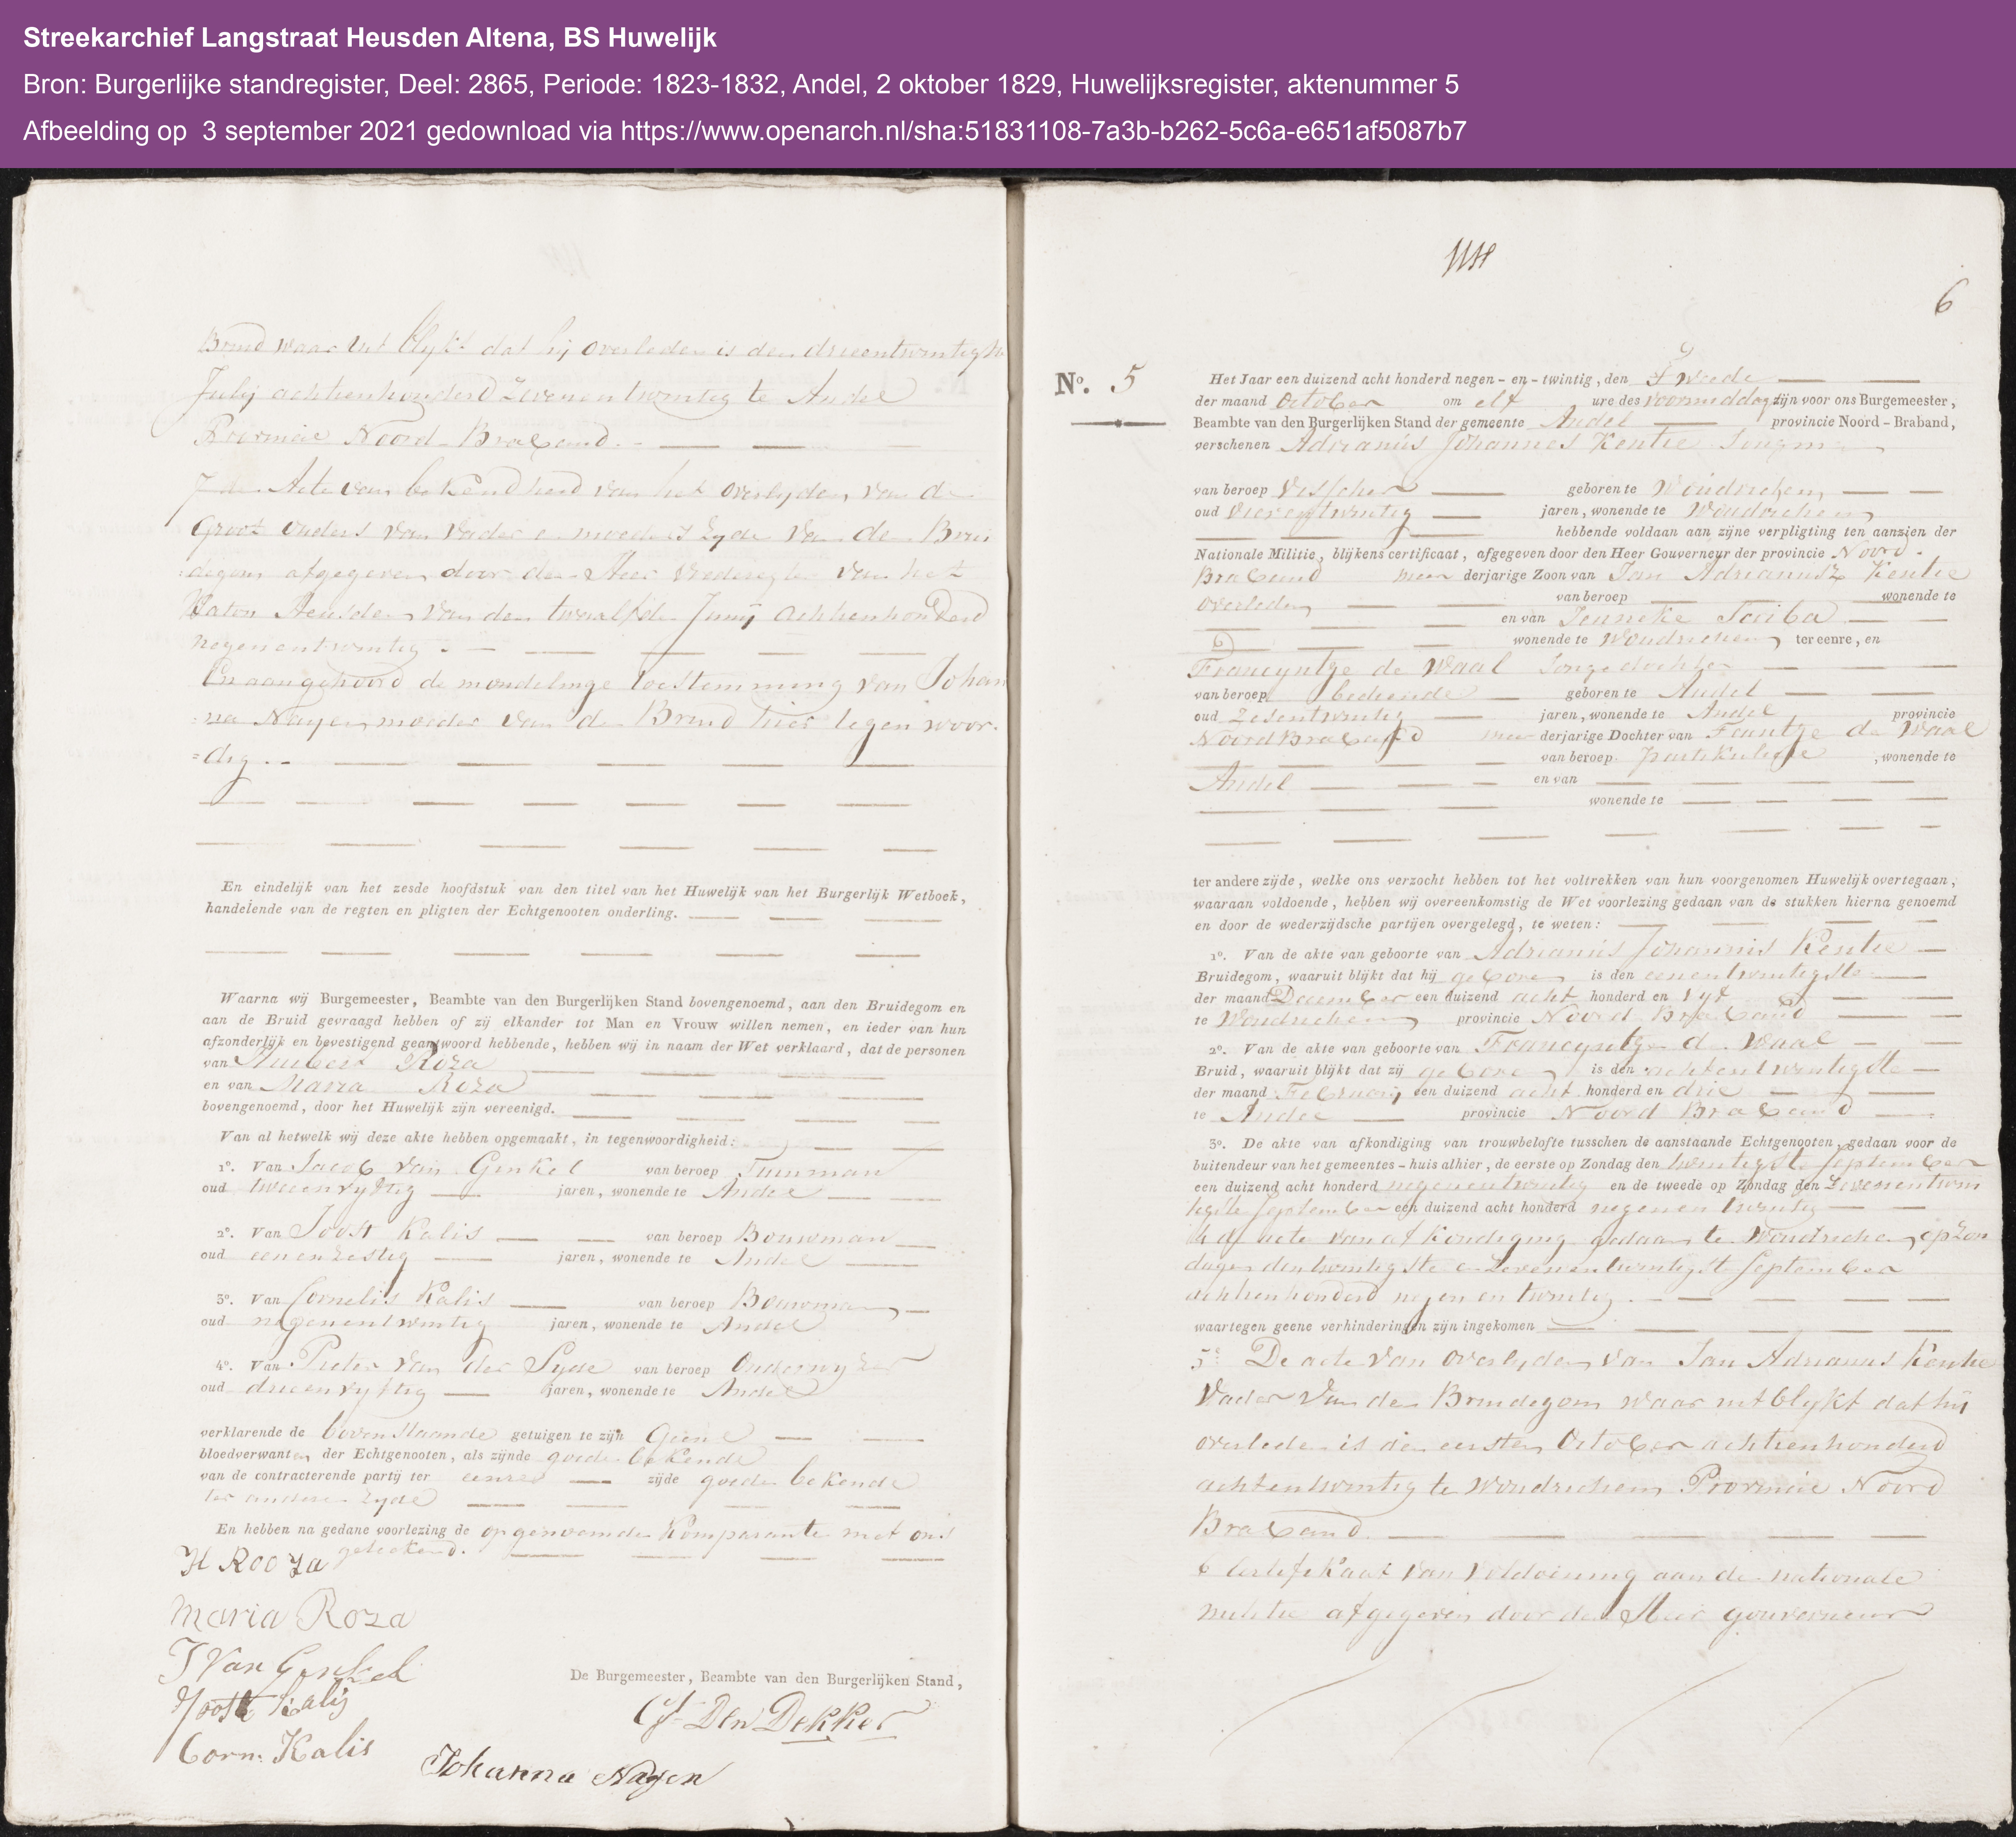 Streekarchief Langstraat Heusden Altena, BS Huwelijk
Bron: Burgerlijke standregister, Deel: 2865, Periode: 1823-1832, Andel, 2 oktober 1829, Huwelijksregister, aktenummer 5
Afbeelding op 3 september 2021 gedownload via https://www.openarch.nl/sha:51831108-7a3b-b262-5c6a-e651af5087b7
Bruid waar uit blijkt dat hij overleden is den drieentwintigste
Julij achttienhonderd zevenentwintig te Andel
Provincie Noord-Braband.
7de Acte van bekendheid van het overlyden van de
Groot ouders van vader en moeders zyde van den Brui
degom afgegeven door den Heer Vrederegter van het
Katon Heusden van den twaalfden Junij achttienhonderd
negenentwintig.
En aangehoord de mondelinge toestemming van Johan
=na Nayen moeder van de Bruid hier tegenwoor.
=dig.
En eindelijk van het zesde hoofdstuk van den titel van het Huwelijk van het Burgerlijk Wetboek,
handelende van de regten en pligten der Echtgenooten onderling.
Waarna wij Burgemeester, Beambte van den Burgerlijken Stand bovengenoemd, aan den Bruidegom en
aan de Bruid gevraagd hebben of zij elkander tot Man en Vrouw willen nemen, en ieder van hun
afzonderlijk en bevestigend geantwoord hebbende, hebben wij in naam der Wet verklaard, dat de personen
van Huibert Roza
en van Maria Roza
bovengenoemd, door het Huwelijk zijn vereenigd.
Van al hetwelk wij deze akte hebben opgemaakt, in tegenwoordigheid:
1º. Van Jacob van Genkel van beroep Tuinman
oud tweeenvyftig jaren, wonende te Andel
2º. Van Joost Kalis van beroep Bouwman
oud eenenzestig jaren, wonende te Andel
3º. Van Cornelis Kalis van beroep Bouwman
oud negenentwintig jaren, wonende te Andel
4º. Van Pieter van der Pyde van beroep Onderwyzer
oud drieenvyftig jaren, wonende te Andel
verklarende de bovenstaande getuigen te zijn Geene
bloedverwanten der Echtgenooten, als zijnde goede bekende
van de contracterende partij ter eenre zijde goede bekende
ter andere zyde
En hebben na gedane voorlezing de opgenoemde komparante met ons
geteekend.
H Rooza
Maria Roza
J Van Genkel
Joost Kalis
Corn: Kalis
De Burgemeester, Beambte van den Burgerlijken Stand,
Den Dekker
Johanna Nayen
6
Nº. 5
Het Jaar een duizend acht honderd negen-en-twintig, den Tweede
der maand October om elf ure des voormiddag zijn voor ons Burgemeester,
Beambte van den Burgerlijken Stand der gemeente Andel provincie Noord-Braband,
verschenen Adrianus Johannes Kentie Jongm
van beroep Visscher geboren te Woudrichem
oud vierentwintig jaren, wonende te Woudrichem
hebbende voldaan aan zijne verpligting ten aanzien der
Nationale Militie, blijkens certificaat, afgegeven door den Heer Gouverneur der provincie Noord-
Braband meerderjarige Zoon van Jan Adriaansz Kentie
overleden van beroep wonende te
en van Jenneke Saiba
wonende te Woudrichem ter eenre, en
Francyntje de Waal Jongedochter
van beroep bediende geboren te Andel
oud Zesentwintig jaren, wonende te Andel provincie
Noord Braband meerderjarige Dochter van Teuntje de Waal
van beroep partikuliere, wonende te
Andel en van
wonende te
ter andere zijde, welke ons verzocht hebben tot het voltrekken van hun voorgenomen Huwelijk overtegaan,
waaraan voldoende, hebben wij overeenkomstig de Wet voorlezing gedaan van de stukken hierna genoemd
en door de wederzijdsche partijen overgelegd, te weten:
1º. Van de akte van geboorte van Adrianus Johannis Kentie
Bruidegom, waaruit blijkt dat hij geboren is den eenentwintigste
der maand December een duizend acht honderd en vyf
te Woudrichem provincie Noord Braband
2º. Van de akte van geboorte van Francyntje de Waal
Bruid, waaruit blijkt dat zij geboren is den achtentwintigste
der maand Februarij een duizend acht honderd en drie
te Andel provincie Noord Braband
3º. De akte van afkondiging van trouwbelofte tusschen de aanstaande Echtgenooten, gedaan voor de
buitendeur van het gemeentes-huis alhier, de eerste op Zondag den twintigste September
een duizend acht honderd negenentwintig en de tweede op Zondag den zevenentwin
tigste September een duizend acht honderd negenentwintig
4 de acte van afkondiging gedaan te Woudrichem op zon
dagen den twintigste en zevenentwintigste September
achttienhonderd negen en twintig.
waartegen geene verhinderingen zijn ingekomen
5e De acte van overlyden van Jan Adrianus Kentie
Vader van den Bruidegom waar uit blykt dat hij
overleden is den eersten October achttienhonderd
achtentwintig te Woudrichem Provincie Noord
Braband.
6 Certifikaat van voldoening aan de nationale
militie afgegeven door den Heer gouverneur